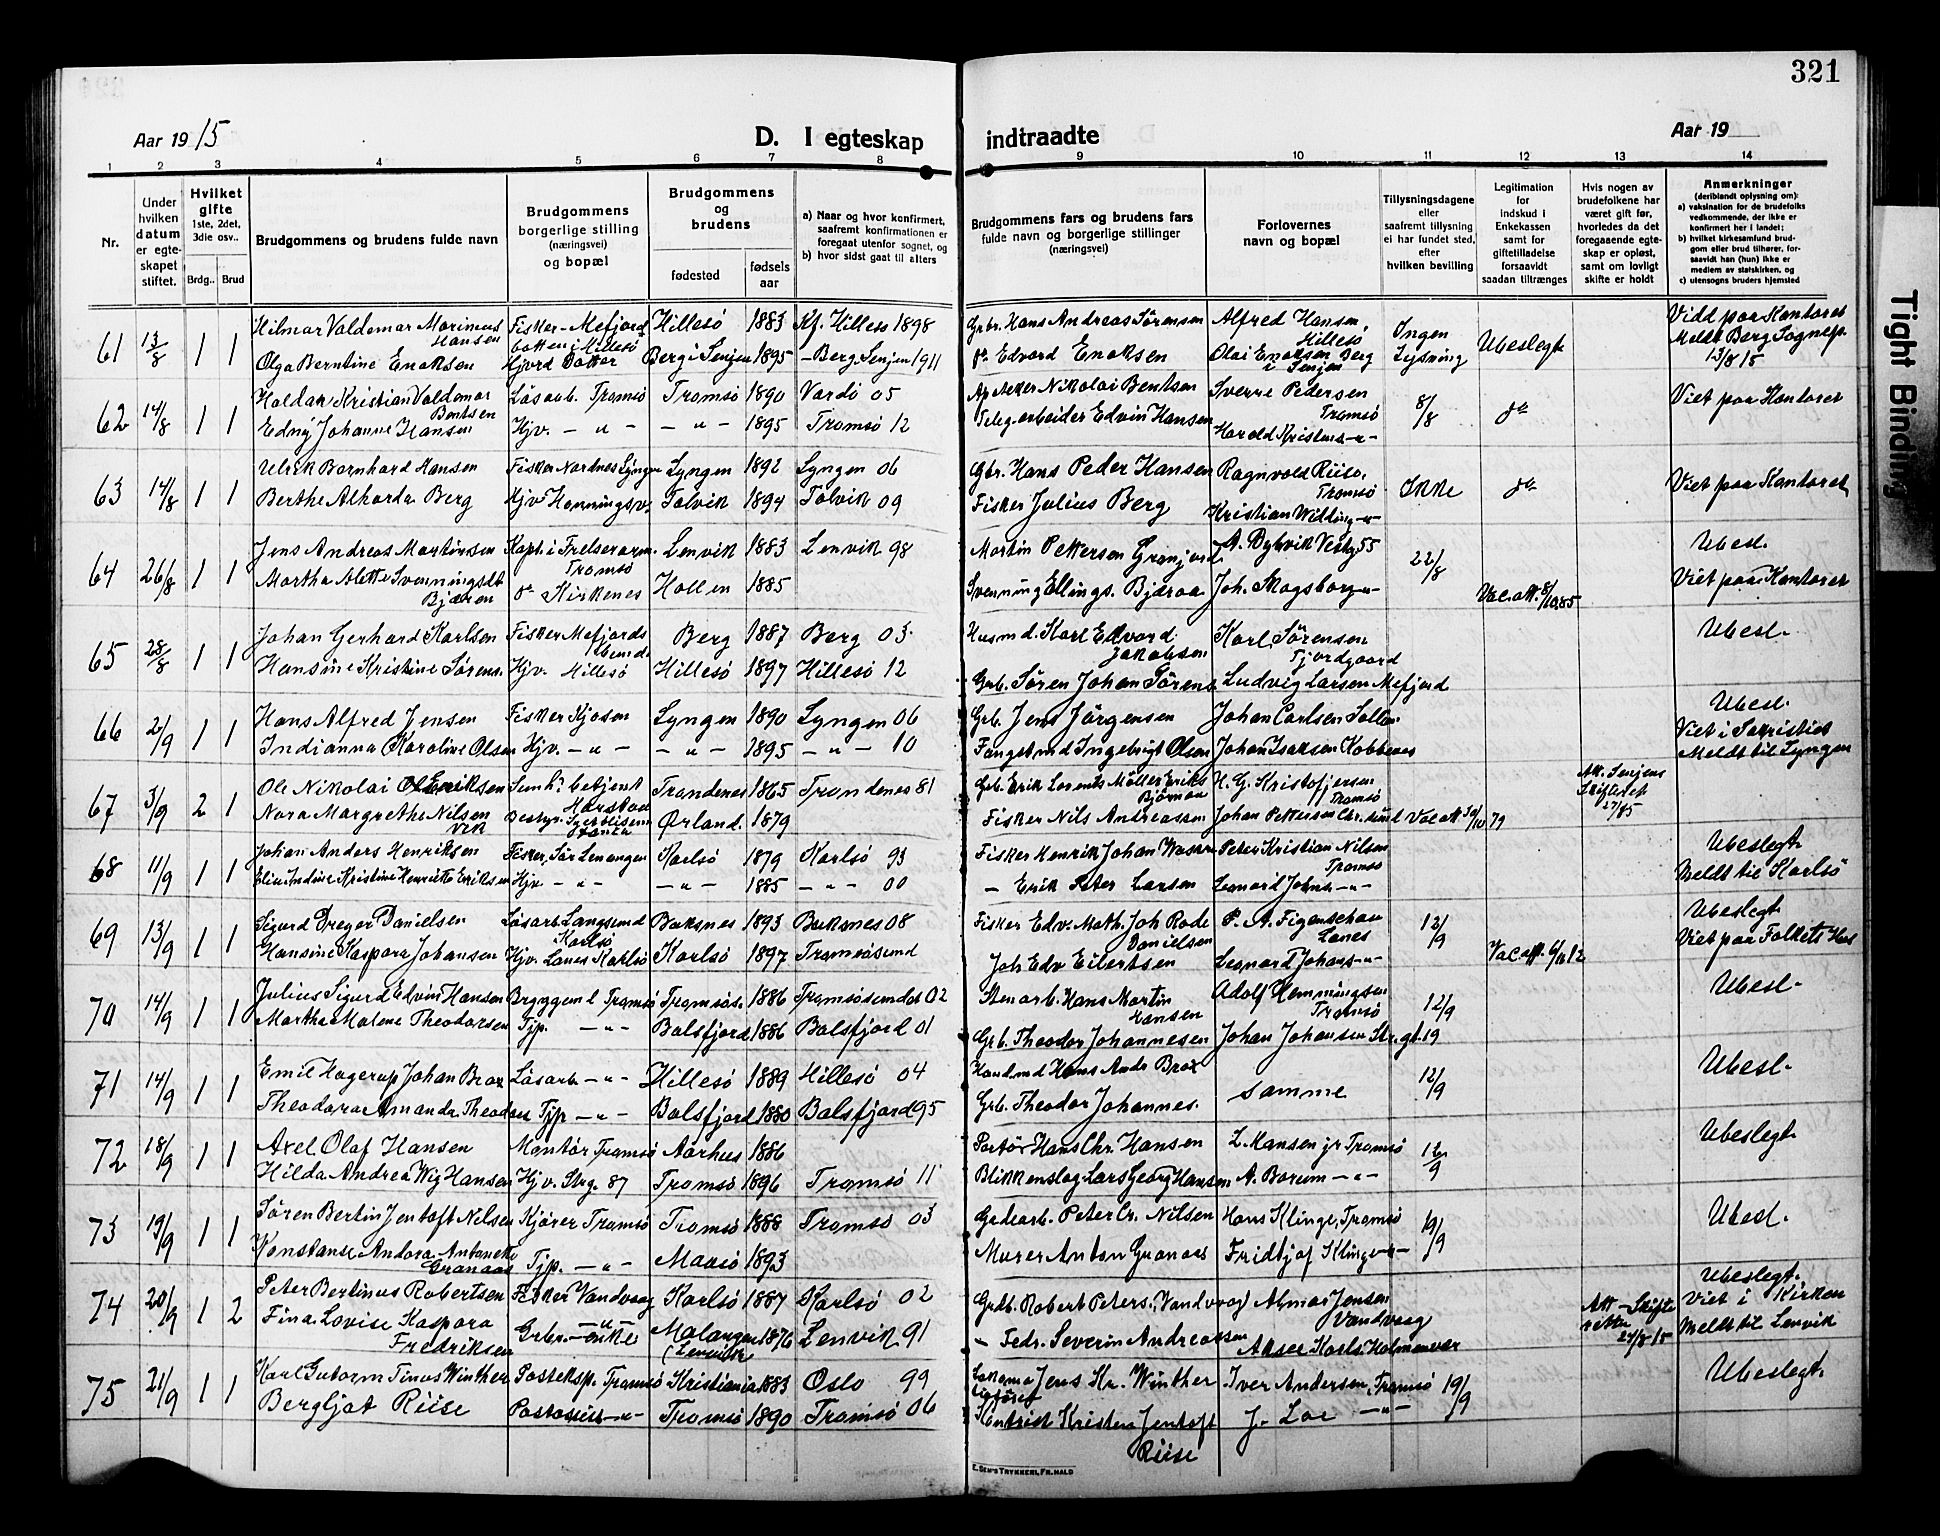 321
Aar 1915
D. I egteskap indtraadte
Aar 19
1 2 3 4 5 6 7 8 9 10 11 12 13 14
Nr.
Under hvilken datum er egteskapet stiftet.
Hvilket gifte 1ste, 2det, 3die osv..
Brdg.. Brud
Brudgommens og brudens fulde navn
Brudgommens borgerlige stilling (næringsvei) og bopæl
Brudgommens og brudens
fødested
fødsels aar
a) Naar og hvor konfirmert, saafremt konfirmationen er foregaat utenfor sognet, og
b) hvor sidst gaat til alters
Brudgommens fars og brudens fars fulde navn og borgerlige stillinger (næringsvei)
Forlovernes navn og bopæl
Tillysningsdagene eller saafremt tillysning ei har fundet sted, efter hvilken bevilling
Legitimation for indskud i Enkekassen samt for giftetilladelse forsaavidt saadan tiltrænges
Hvis nogen av brudefolkene har været gift før, hvorledes da det foregaaende egteskap er opløst, samt om lovligt skifte er holdt
Anmerkninger (deriblandt oplysning om):
a) vaksination for de brudefolks vedkommende, der ikke er konfirmert her i landet;
b) hvilket kirkesamfund brudgom eller brud tilhører, forsaavidt han (hun) ikke er medlem av statskirken, og
c) utensogns bruders hjemsted
61 13/8 1 1 Hilmar Valdemar Marinius Hansen Fisker Mefjord Hillesö 1883 Kf. Hillesö 1898 Grbr. Hans Andreas Sörensen Alfred Hansen, Hillesö Ingen Lysning Ubeslegt Viet paa Kontoret
Olga Berntine Enoksen Berg i Senjen 1895 – Berg Senjen 1911 Edvard Enoksen Olai Enoksen Berg i Senjen Meldt Berg Sognepr. 13/8 15
62 14/8 1 1 Haldan Kristian Valdemar Bentsen Lösarb. Tromsö Tromsö 1890 Vardö 05 Nikolai Bentsen Sverre Pedersen Tromsö 8/8 do Viet paa Kontoret
Edny Johanne Hansen Hjv. – " – – " – 1895 Tromsö 12 Teleg. arbeider Edvin Hansen Harald Kristens – " –
63 14/8 1 1 Ulrik Bernhard Hansen Fisker Nordnes Lyngen Lyngen 1892 Lyngen 06 Gbr. Hans Peder Hansen Ragnvald Riise, Tromsö Ikke do Viet paa Kontoret
Berthe Alharda Berg Hjv Honningsv. Talvik 1894 Talvik 09 Fisker Julius Berg Kristian Wilding – " –
64 26/8 1 1 Jens Andreas Martinsen Kapt. i Frelserarm. Tromsö Lenvik 1883 Lenvik 98 Martin Pettersen A. Dybvik Vestg 55 22/8 Ubesl.
Martha Alette Svenningsdt Bjæren do Kirkenes Hollen 1885 Svenning Ellings. Bjæraa Joh. Skogsborg – " – Vac. att. 8/10 85 Viet paa Kontoret
65 28/8 1 1 Johan Gerhard Karlsen Fisker Mefjords Berg 1887 Berg 03 Husmd. Karl Edvard Jakobsen Karl Sörensen Ubesl.
Hansine Kristine Sörens. Hjv. Hillesö Hillesö 1897 Hillesö 12 Grb. Sören Johan Sörens Ludvig Larsen Mefjord
66 2/9 1 1 Hans Alfred Jensen Fisker Kjosen Lyngen 1890 Lyngen 06 Grb. Jens Jörgensen Johan Carlsen Ubesl.
Indianna Karoline Olsen Hjv. – " – – " – 1895 – " – 10 Fangstmd Ingebrigt Olsen Johan Isaksen Kobbenes Viet i Sakristiet Meldt til Lyngen
67 3/9 2 1 Ole Nikolai Eriksen betjent Harstad Trondenes 1865 Trondenes 81 Grb. Erik Lorents Möller Eriks H. G. Kristofersen Tromsö Att. Senjens Skifteret 27/8 5
Nora Margrethe Nilsen Vik Ørland. 1879 Fisker Nils Andreassen Johan Pettersen Vac att 30/10 79
68 11/9 1 1 Johan Anders Henriksen Fisker, Sör Lenangen Karlsö 1879 Karlsö 93 Fisker Henrik Johan Peter Kristian Nilsen Tromsö Ubeslegt
Elise Indine Kristine Henriette Eriksen Hjv – " – – " – 1885 – " – 00 – Erik Peter Larsen Leonard Johns – " – Meldt til Karlsö
69 13/9 1 1 Sigurd Dreyer Danielsen Lösarb Langsund Karlsö Buksnes 1893 Buksnes 08 Fisker Edv. Math. Joh Rode Danielsen P. A. Figenschau Lanes 12/9 Ubeslegt
Hansine Kaspara Johansen Hjv. Lanes Karlsö Karlsö 1897 Tromsösund Joh Edv Eilertsen Leonard Johans – " – Vac att. 6/10 12 Viet paa Folkets Hus
70 14/9 1 1 Julius Sigurd Edvin Hansen Bryggeml Tromsö Tromsös. 1886 Tromsösundet 02 Stenarb. Hans Martin Hansen Adolf Hemmingsen Tromsö 12/9 Ubesl.
Martha Malene Theodorsen Tjp. – " – Balsfjord 1886 Balsfjord 01 Grb. Theodor Johannesen Johan Johansen Str.gt. 19
71 14/9 1 1 Emil Hagerup Johan Brox Lösarb – " – Hillesö 1889 Hillesö 04 Handmd Hans Andr Brox samme 12/9 Ubesl.
Theodora Amanda Theodors Tjp – " – Balsfjord 1880 Balsfjord 95 Grb. Theodor Johannes.
72 18/9 1 1 Axel Olaf Hansen Montör Tromsö Aarhus 1886 Portör Hans Chr. Hansen L. Hansen jr Tromsö 12/9 Ubeslegt
Hilda Andrea Wig Hansen Hjv. Strg. 87 Tromsö 1896 Tromsö 11 Blikkenslag Lars Georg Hansen A. Borum – " –
73 19/9 1 1 Sören Bertin Jentoft Nilsen Kjörer Tromsö Tromsö 1888 Tromsö 03 Gadearb. Peter Cr. Nilsen Hans Klinge, Tromsö 19/9 Ubesl.
Konstanse Andora Antonette Granaas Tjp. – " – Maasö 1893 Murer Anton Granaas Fridtjof Klinge – " –
74 20/9 1 2 Peter Bertinus Robertsen Fisker Vandvaag Karlsö 1887 Karlsö 02 Grdb. Robert Peters. Vandvaag Almar Jensen Vandvaag Att – Skifteretten 24/8 15 Ubeslegt. Viet i Kirken
Fina Lovise Kaspara Fredriksen Grbr. – enke Malangen (Lenvik) 1876 Lenvik 91 – Fedr. Severin Andreassen Aksel Karls. Holmenvær Meldt til Lenvik
75 21/9 1 1 Karl Gutorm Tinus Winther Posteksp. Tromsö Kristiania 1883 Oslo 99 Jens Kr. Winther Iver Andersen, Tromsö 19/9 Ubeslegt.
Bergljot Riise Postassist – " – Tromsö 1890 Tromsö 06 Kristen Jentoft Riise J. Loe – " –
E. SEM'S TRYKKERI, FR.HALD
Tight Binding